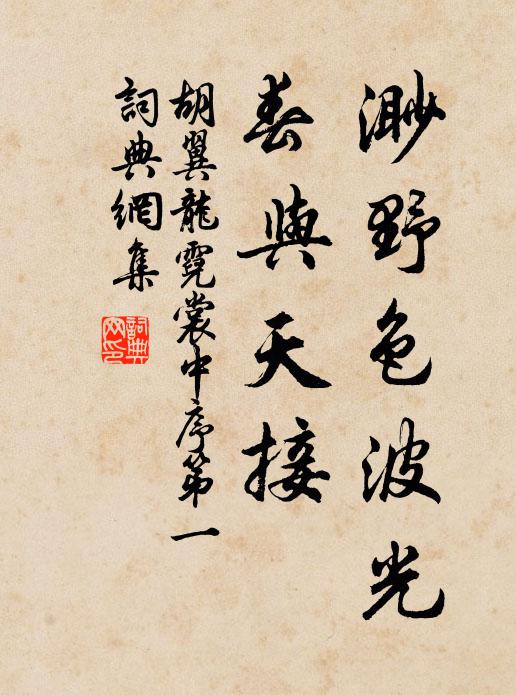 渺野色波光
春與天接
胡翼龍霓裳中序第一
詞典網集
詞典網印